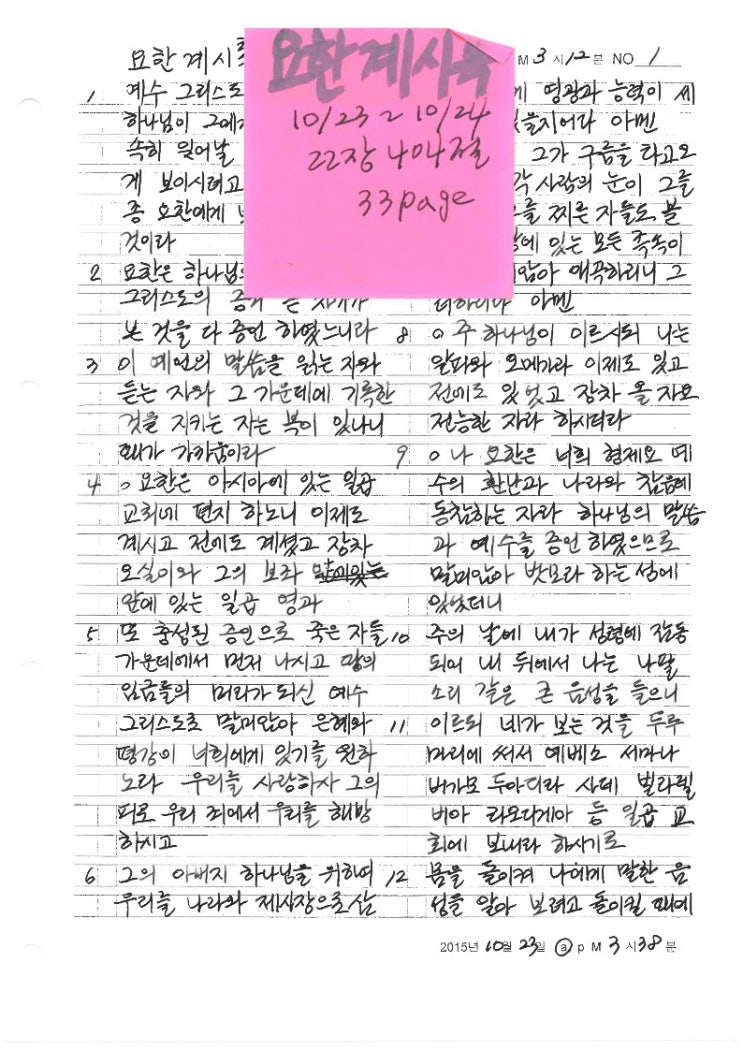 요한계시록
10/23 ~ 10/24
22장 404절
33page
요한계시
M 3 시 12 분 NO 1
1 예수 그리스도
하나님이 그에게
속히 일어날
게 보이시려고
종 요한에게
것이라
2 요한은 하나님
그리스도의 증거
본 것을 다 증언 하였느니라
3 이 예언의 말씀을 읽는 자와
듣는 자와 그 가운데에 기록한
것을 지키는 자는 복이 있나니
때가 가까움이라
4 o 요한은 아시아에 있는 일곱
교회에 편지 하노니 이제도
계시고 전에도 계셨고 장차
오실이와 그의 보좌
앞에 있는 일곱 영과
5 또 충성된 증인으로 죽은 자들
가운데에서 먼저 나시고 땅의
임금들의 머리가 되신 예수
그리스도로 말미암아 은혜와
평강이 너희에게 있기를 원하
노라 우리를 사랑하사 그의
피로 우리 죄에서 우리를 해방
하시고
6 그의 아버지 하나님을 위하여
우리를 나라와 제사장으로 삼
영광과 능력이 세
있을지어다 아멘
그가 구름을 타고 오
각 사람의 눈이 그를
를 찌른 자들도 볼
에 있는 모든 족속이
암아 애곡하리니 그
러하리라 아멘
8 o 주 하나님이 이르시되 나는
알파와 오메가라 이제도 있고
전에도 있었고 장차 올 자요
전능한 자라 하시더라
9 o 나 요한은 너희 형제요 예
수의 환난과 나라와 참음에
동참하는 자라 하나님의 말씀
과 예수를 증언 하였으므로
말미암아 밧모라 하는 섬에
있었더니
10 주의 날에 내가 성령에 감동
되어 내 뒤에서 나는 나팔
소리 같은 큰 음성을 들으니
11 이르되 네가 보는 것을 두루
마리에 써서 에베소 서머나
버가모 두아디라 사데 빌라델
비아 라오디게아 등 일곱 교
회에 보내라 하시기로
12 몸을 돌이켜 나에게 말한 음
성을 알아 보려고 돌이킬 때에
2015년 10월 23일 a p M 3 시 38 분